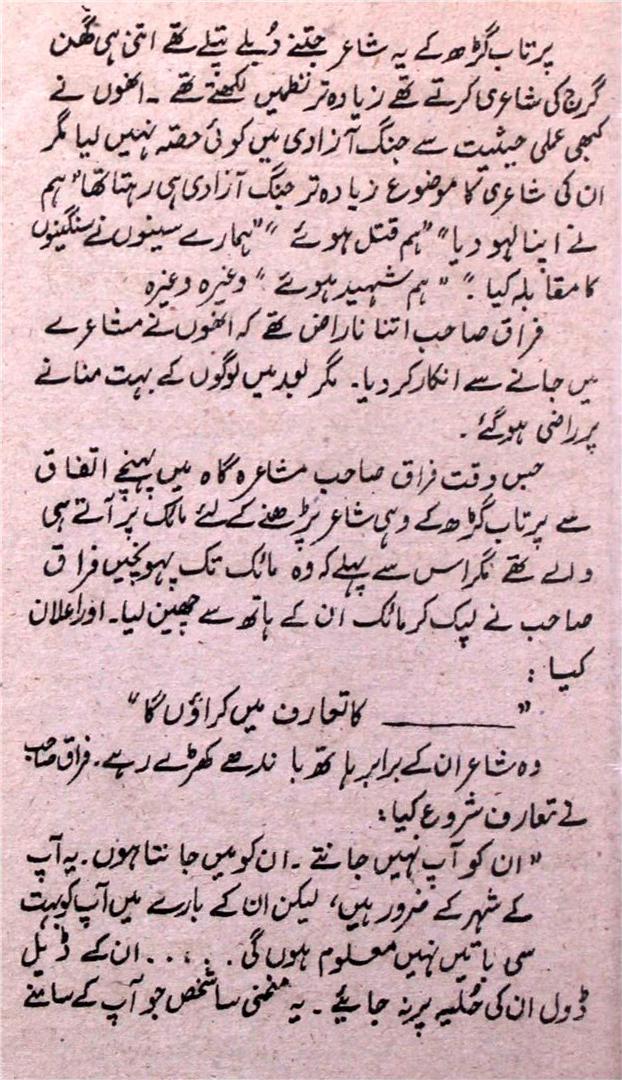 پرتاب گڑھ کے یہ شاعر جتنے دُبلے پتلے تھے اتنی ہی گھن
گرج کی شاعری کرتے تھے زیادہ تر نظمیں لکھتے تھے ۔ انھوں نے
کبھی عملی حیثیت سے جنگ آزادی میں کوئی حصّہ نہیں لیا مگر
ان کی شاعری کا موضوع زیادہ تر جنگ آزادی ہی رہتا تھا "ہم
نے اپنا لہو دیا" "ہم قتل ہوئے" "ہمارے سینوں نے سنگینوں
کا مقابلہ کیا" "ہم شہید ہوئے" وغیرہ وغیرہ
فراق صاحب اتنا ناراض تھے کہ انھوں نے مشاعرے
میں جانے سے انکار کر دیا ۔ مگر بعد میں لوگوں کے بہت منانے
پر راضی ہو گئے ۔
جس وقت فراق صاحب مشاعرہ گاہ میں پہنچے اتفاق
سے پرتاب گڑھ کے وہی شاعر پڑھنے کے لئے مائک پر آتے ہی
والے تھے مگر اس سے پہلے کہ وہ مائک تک پہونچیں فراق
صاحب نے لپک کر مائک ان کے ہاتھ سے چھین لیا ۔ اور اعلان
کیا :
"ــــــــــــ کا تعارف میں کراؤں گا"
وہ شاعر ان کے برابر ہاتھ باندھے کھڑے رہے ۔ فراق صاحب
نے تعارف شروع کیا :
"ان کو آپ نہیں جانتے ۔ ان کو میں جانتا ہوں ۔ یہ آپ
کے شہر کے ضرور ہیں، لیکن ان کے بارے میں آپ کو بہت
سی باتیں نہیں معلوم ہوں گی ..... ان کے ڈیل
ڈول ان کی حُلیہ پر نہ جائیے ۔ یہ منحنی سا شخص جو آپ کے سامنے